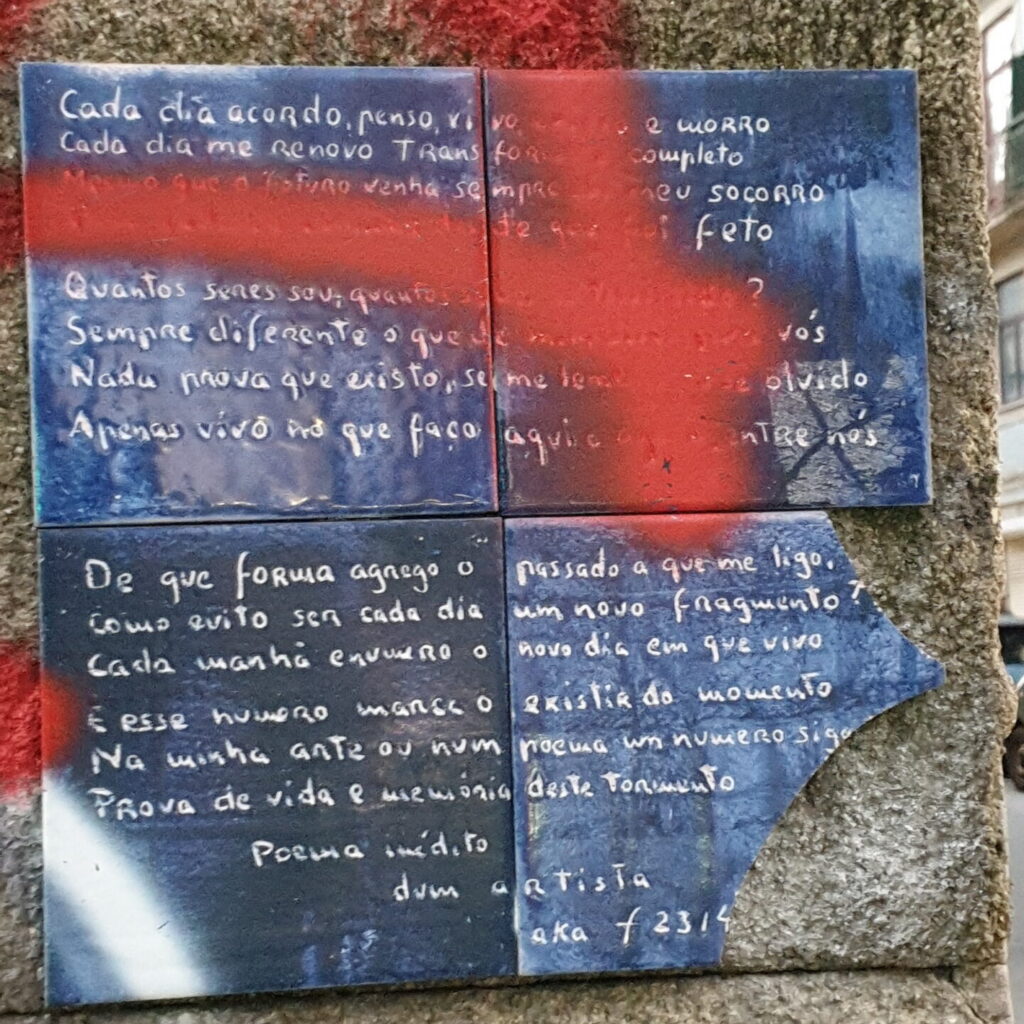 Cada dia acordo, penso, vivo e morro
Cada dia me renovo Transfor completo
que o futuro venha sempre meu socorro
feto
Quantos seres sou, quantos ?
Sempre diferente o que vós
Nada prova que existo, se me olvido
Apenas vivo no que faço aqui e entre nós
De que forma agrego o passado a que me ligo,
como evito ser cada dia um novo fragmento?
Cada manhã enumero o novo dia em que vivo
E esse numero marca o existir do momento
Na minha arte ou num poema um numero sigo
Prova de vida e memória deste tormento
Poema inédito
dum artista
aka f 2314